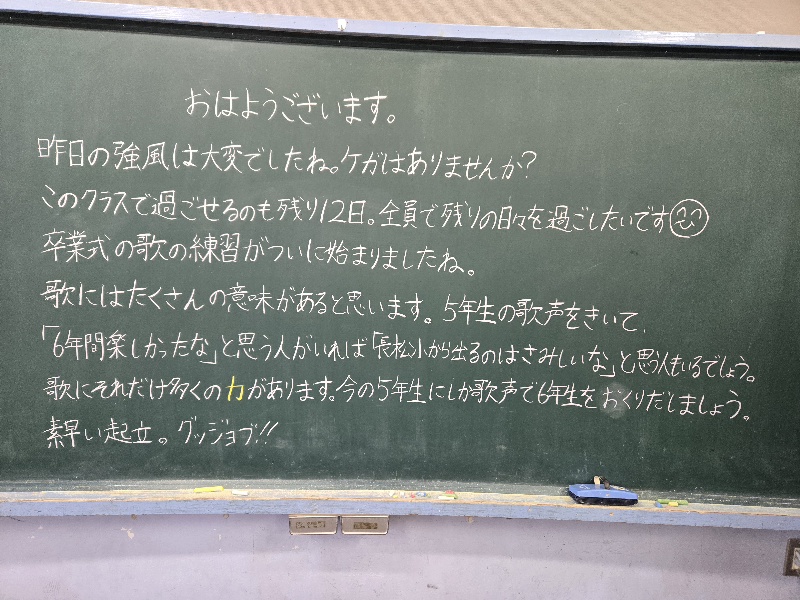 おはようございます。
昨日の強風は大変でしたね。ケガはありませんか？
このクラスで過ごせるのも残り12日。全員で残りの日々を過ごしたいです
卒業式の歌の練習がついに始まりましたね。
歌にはたくさんの意味があると思います。5年生の歌声をきいて、
「6年間楽しかったな」と思う人がいれば「長松小から出るのはさみしいな」と思う人もいるでしょう。
歌にそれだけ多くの力があります。今の5年生にしか歌声で6年生をおくりだしましょう。
素早い起立。グッジョブ!!